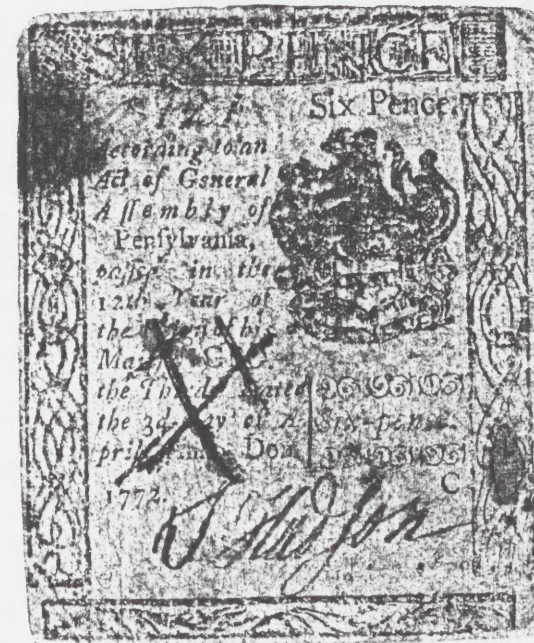 SIX PENCE
Six Pence.
According to an
Act of General
Aſſembly of
Penſylvania,
paſſed in the
12th Year of
the Reign of his
Majeſty
the Third. Dated
the 3d Day of A-
pril, Dom.
1772.
Six-pence.
C
Hudſon